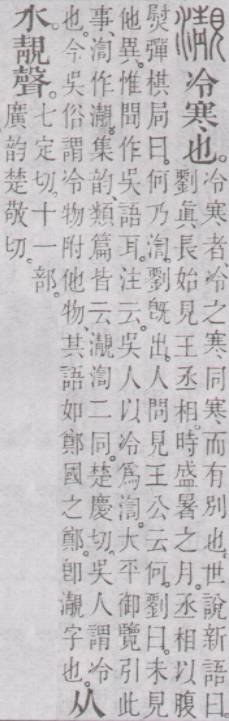 瀙冷寒也。冷寒者、冷之寒、同寒而有別也。世說新語曰。
劉眞長始見王丞相。時盛暑之月。丞相以腹
熨彈棋局曰。何乃渹。劉旣出。人問見王公云何。劉曰。未見
他異。惟聞作吳語耳。注云。吳人以冷爲渹。大平御覽引此
事、渹作瀙。集韵、類篇皆云、瀙渹二同。楚慶切。吳人謂冷
也。今吳俗謂冷物附他物、其語如鄭國之鄭。卽瀙字也。从
水。靚聲。七定切。十一部。
廣韵楚敬切。